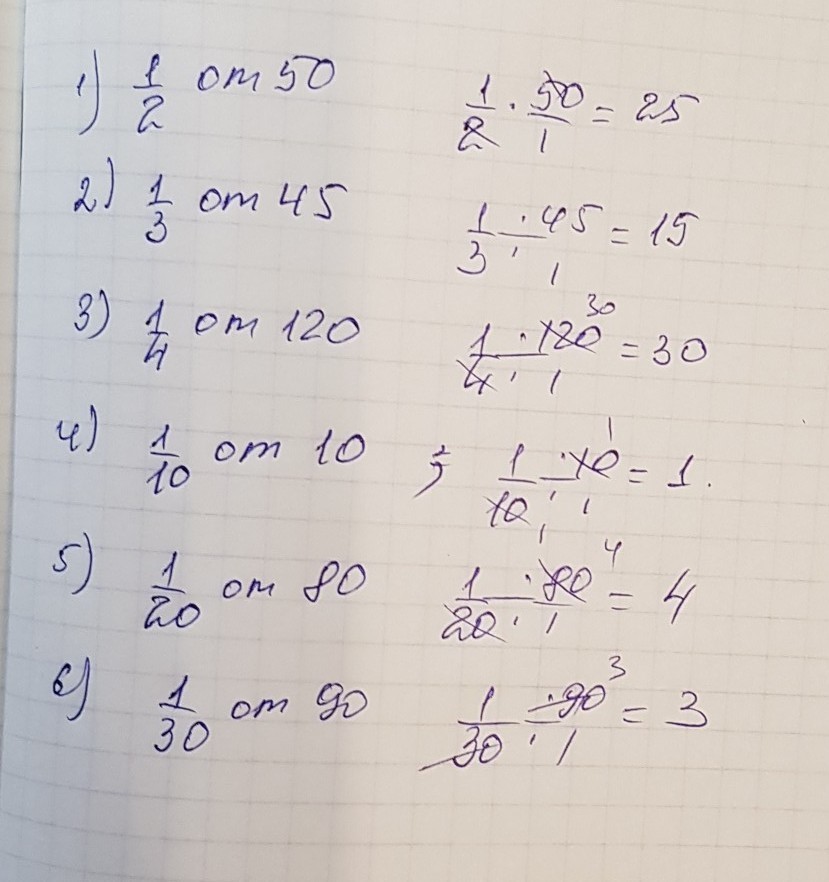 1) 1/2 от 50 1/2 · 50/1 = 25
2) 1/3 от 45 1/3 · 45/1 = 15
3) 1/4 от 120 1/4 · 120/1 30 = 30
4) 1/10 от 10 ; 1/10 1 · 10/1 1 = 1.
5) 1/20 от 80 1/20 · 80/1 4 = 4
6) 1/30 от 90 1/30 · 90/1 3 = 3